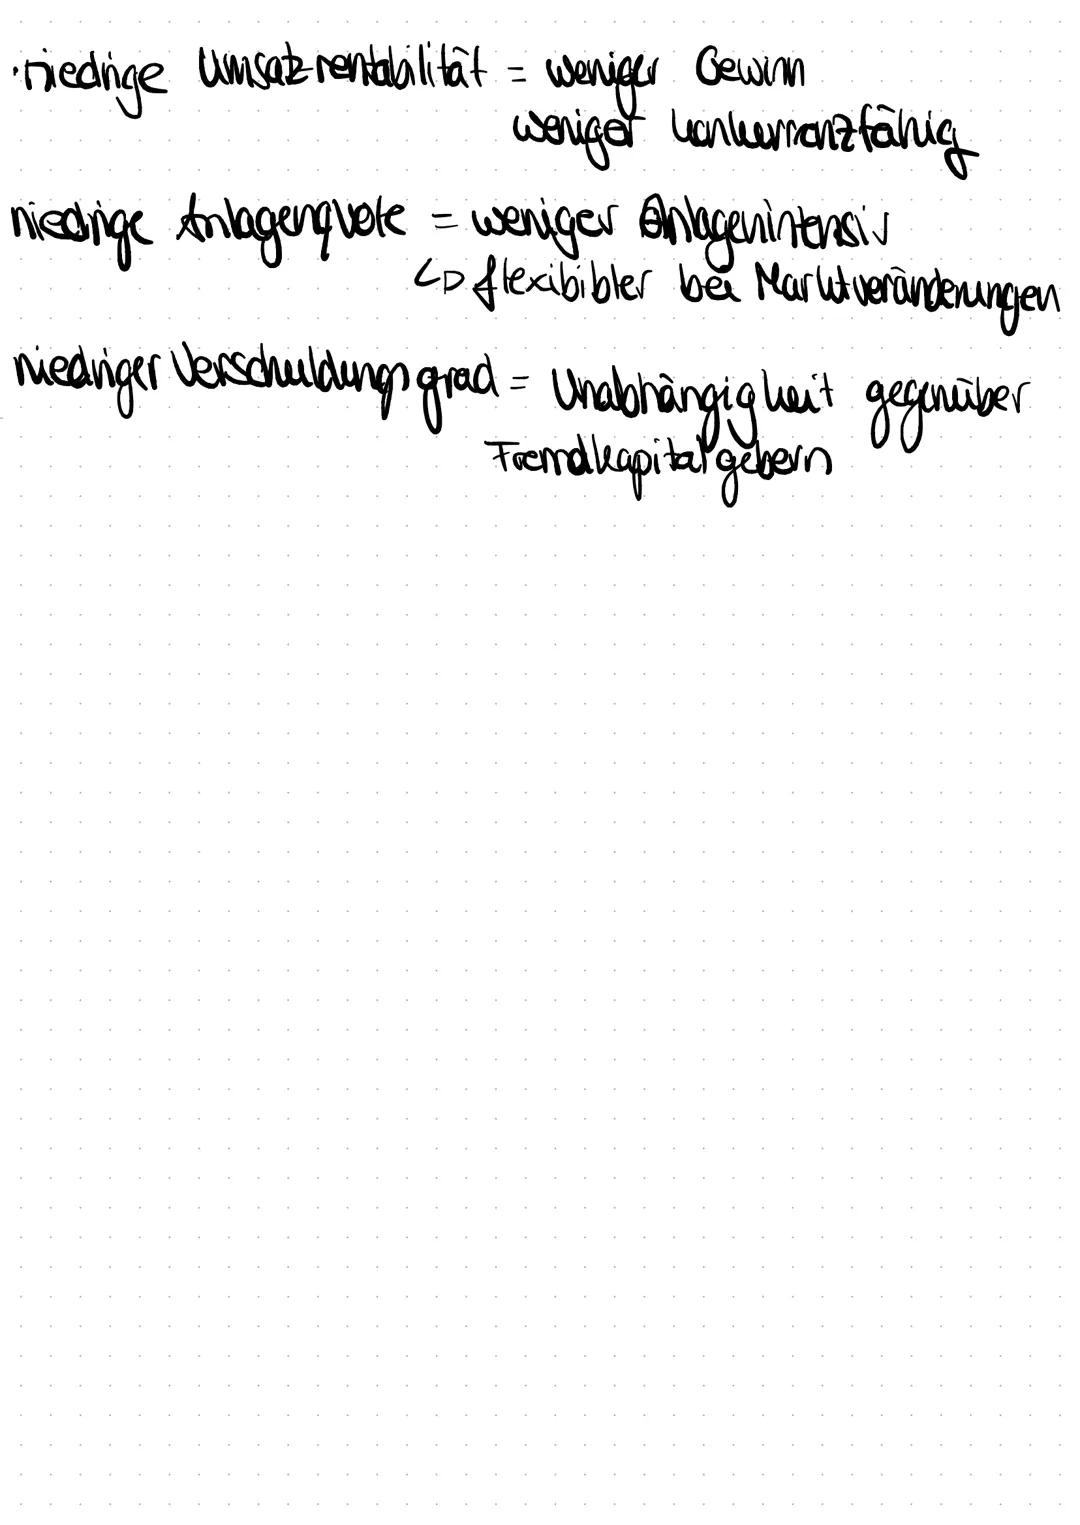 · niedrige Umsatzrentabilität = weniger Gewinn
weniger konkurranzfähig
niedrige Anlagenquote = weniger Anlagenintensiv
↳ flexibibler bei Marktveränderungen
niedriger Verschuldungsgrad = Unabhängigkeit gegenüber
Fremdkapitalgebern